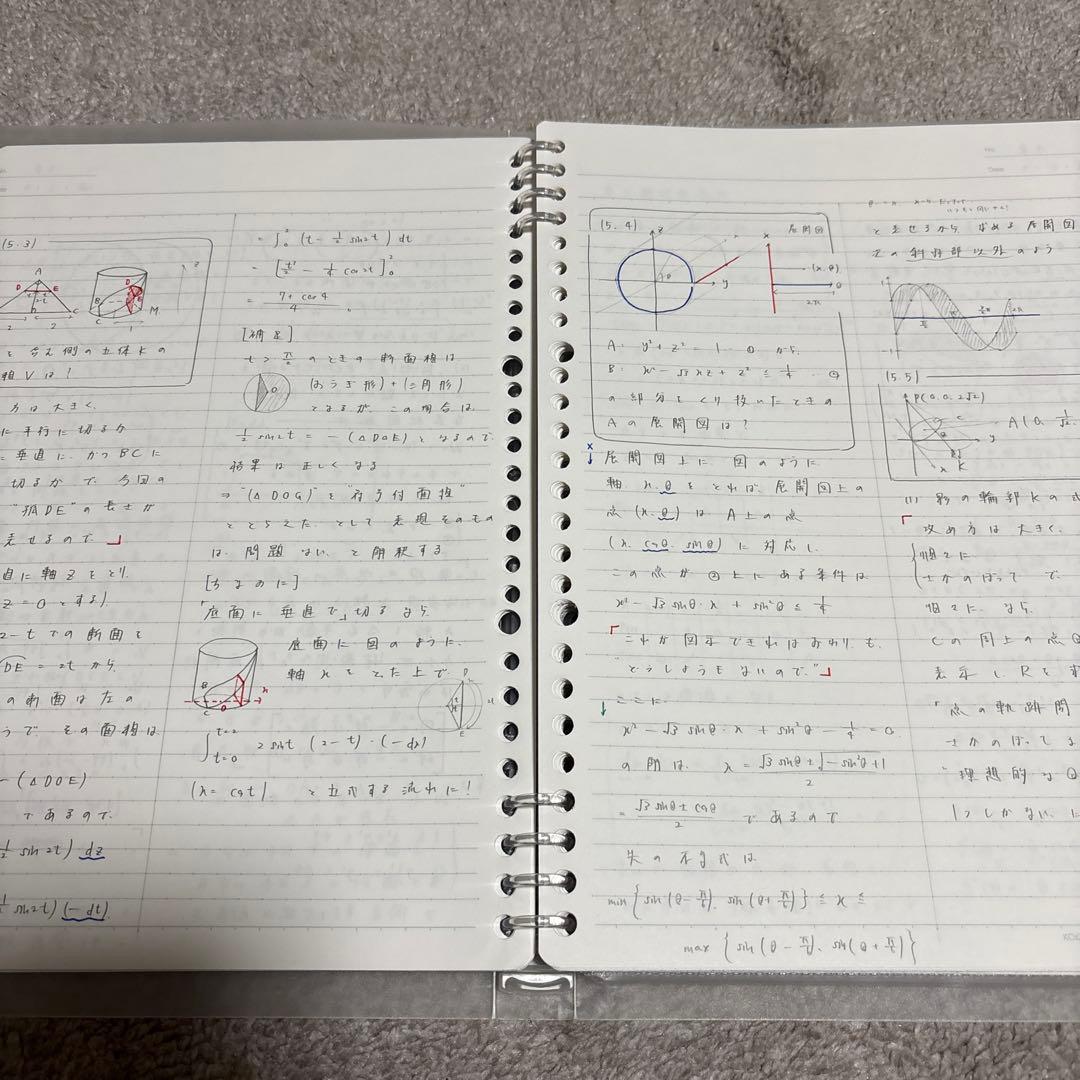 (5.3)
A
D
E
B
C
2
2
Z
M
方は大きく、
に平行に切るか
垂直に、かつBCに
切るかで、今回の
"弧DE"の長さが
表せるので」
直に軸Zをとり、
Z=0とする)
2-tでの断面を
DE = 2tから
の断面は左の
うで その面積は
-(△DOE)
であるので、
½ sin2t) dz
½ sin2t) (-dt)
= ∫₀² (t - ½ sin2t) dt
= [t²/2 - ¼ cos2t]₀²
= (7+cos4)/4 。
[補足]
t > π/2 のときの断面積は
(おうぎ形)+(三角形)
となるが、この場合は、
½ sin2t = -(△DOE)となるので
結果は正しくなる
⇒ "(△DOG)"を"符号付面積"
ととらえた、として発想そのもの
は、問題ない、と解釈する
[ちなみに]
「底面に垂直で」切るなら
底面に図のように
軸xをとった上で、
∫ t=2 t=0 2sint (2-t)・(-dx)
(x=cost) と立式する流れに!
(5.4)
展開図
z
y
x
θ
(x.θ)
2π
A: y²+z²=1 …① から
B: x²-√3xz+z² ≤ ¼ …②
の部分をくり抜いたときの
Aの展開図は?
展開図上に、図のように
軸 x.θ をとれば、展開図上の
点(x.θ)は A上の点
(x. cosθ. sinθ)に対応し、
この点が②上にある条件は
x²-√3 sinθ・x + sin²θ ≤ ¼
「これが図示できればおわりも、
"どうしようもないので"」
ここに
x²-√3 sinθ・x + sin²θ - ¼ = 0
の解は、 x = (√3 sinθ ± √(-sin²θ+1))/2
= (√3 sinθ ± cosθ)/2 であるので
先の不等式は
min{sin(θ-π/6). sin(θ+π/6)} ≤ x ≤
max{sin(θ-π/6)、sin(θ+π/6)}
と表せるから、求める展開図
は の斜線部以外のよう
1
-1
2π
(5.5)
P(0.0.2√2)
C
y
x
K
(1) 影の輪郭Kの
「攻め方は大きく、
Cの周上の点Q
表示し、Rを
「点の軌跡問
"理想的なQ
1つしかない、に